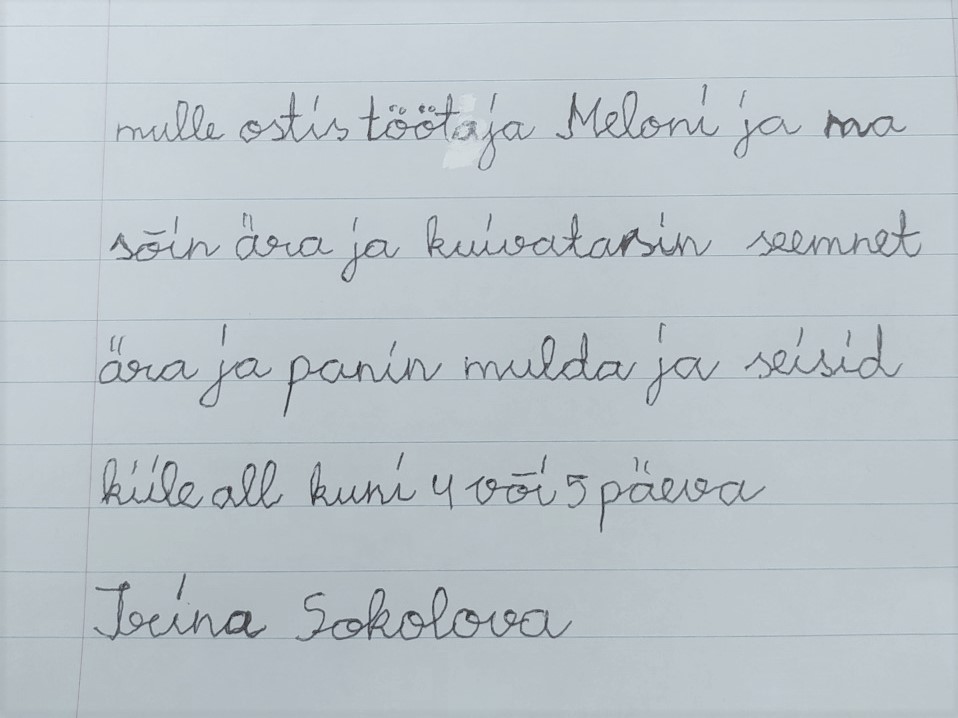 mulle ostis töötaja Meloni ja ma
sõin ära ja kuivatansin seemnet
ära ja panin mulda ja seisid
kiile all kuni 4 või 5 päeva
Irina Sokolova